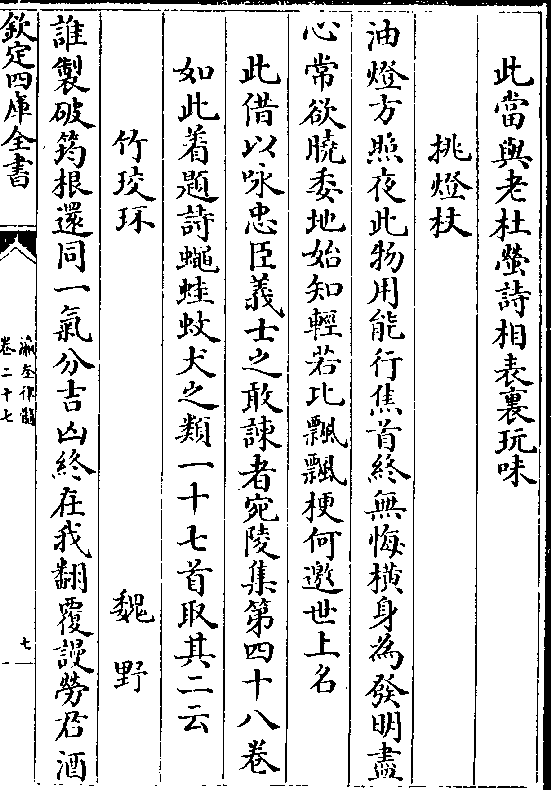 此當與老杜螢詩相表裏玩味
挑燈杖
油燈方照夜此物用能行焦首終無悔橫身為發明盡
心常欲曉委地始知輕若比飄飄梗何邀世上名
此借以咏忠臣義士之敢諫者宛陵集第四十八卷
如此着題詩蠅蛙蚊犬之類一十七首取其二云
竹珓环 魏野
誰製破筠根還同一氣分吉凶終在我翻覆謾勞君酒
欽定四庫全書
瀛奎律髓
卷二十七
七